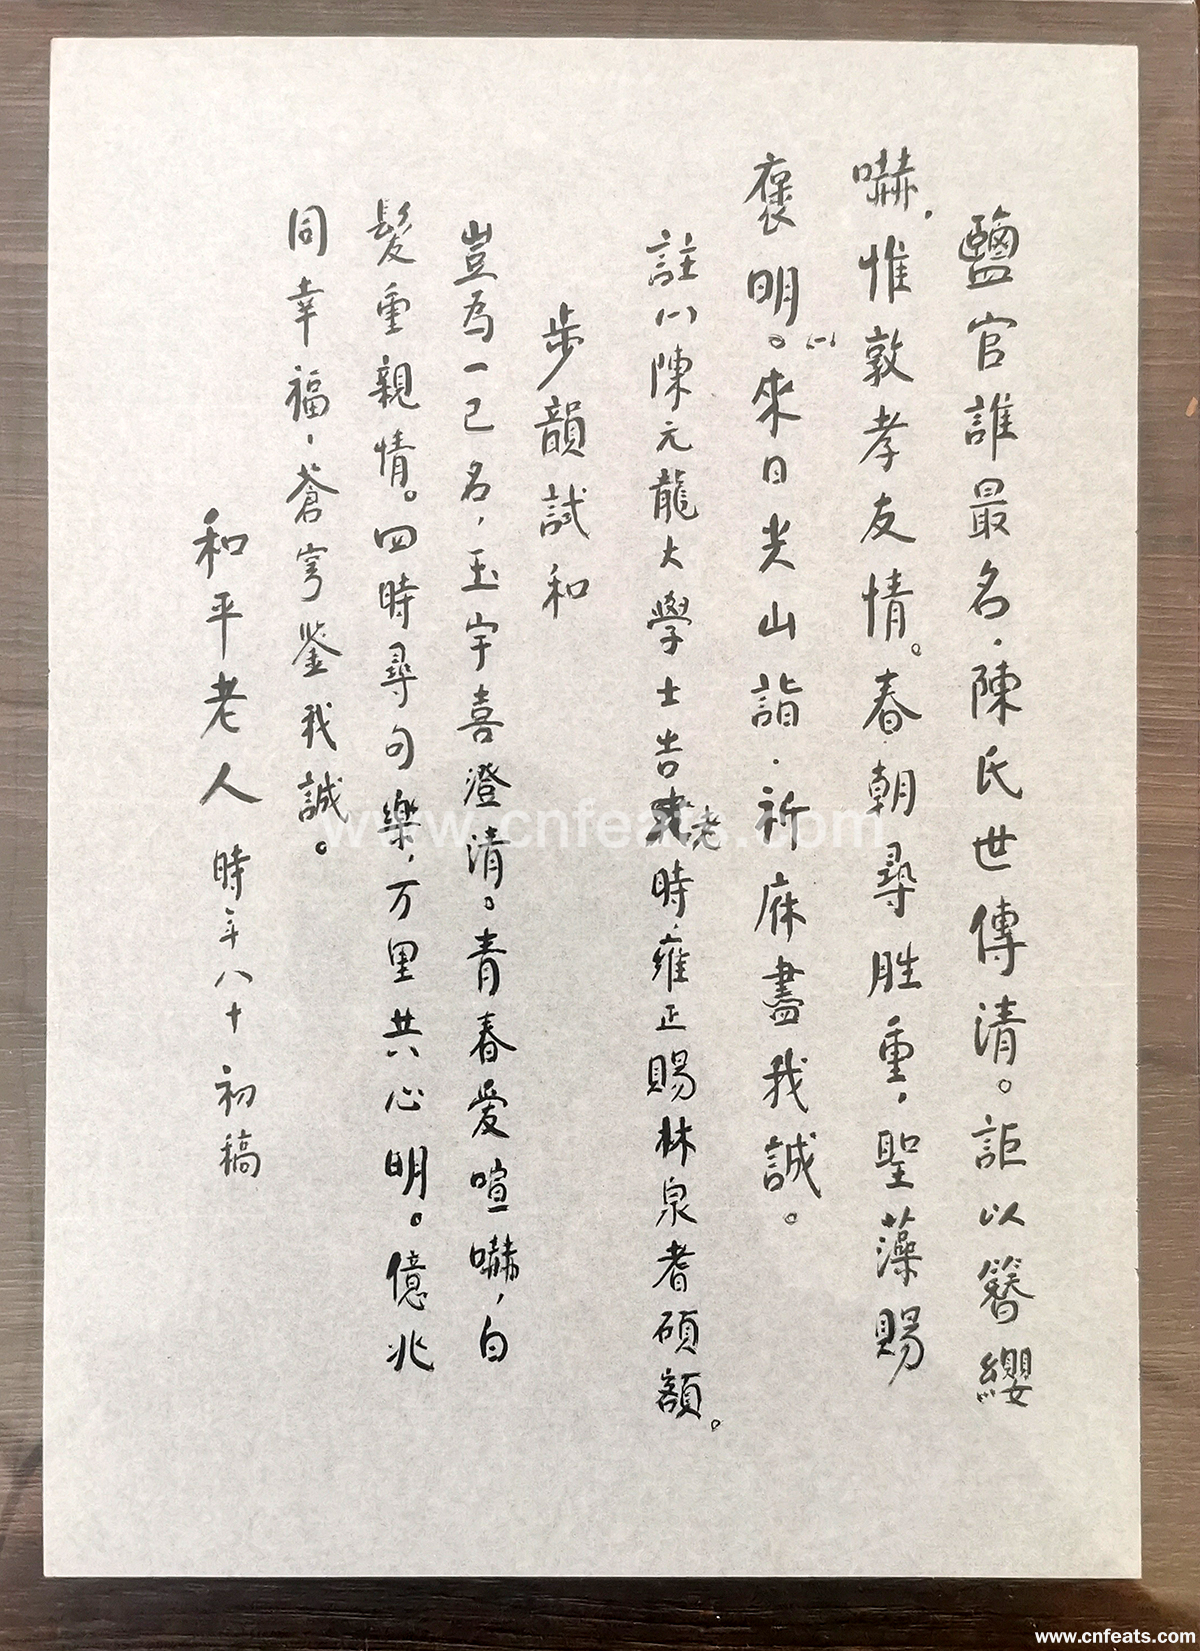 鹽官誰最名．陳氏世傳清。詎以簪纓
嚇，惟敦孝友情。春朝尋胜重，聖藻賜
褒明。⑴來日尖山詣．祈庥盡我誠。
註⑴陳元龍大學士告老時，雍正賜林泉耆碩額。
步韻試和
豈為一己名，玉宇喜澄清。青春爱喧嚇，白
髮重親情。四時尋句樂，万里共心明。億兆
同幸福．蒼穹鉴我誠。
和平老人 時年八十 初稿
www.cnfeats.com
www.cnfeats.com